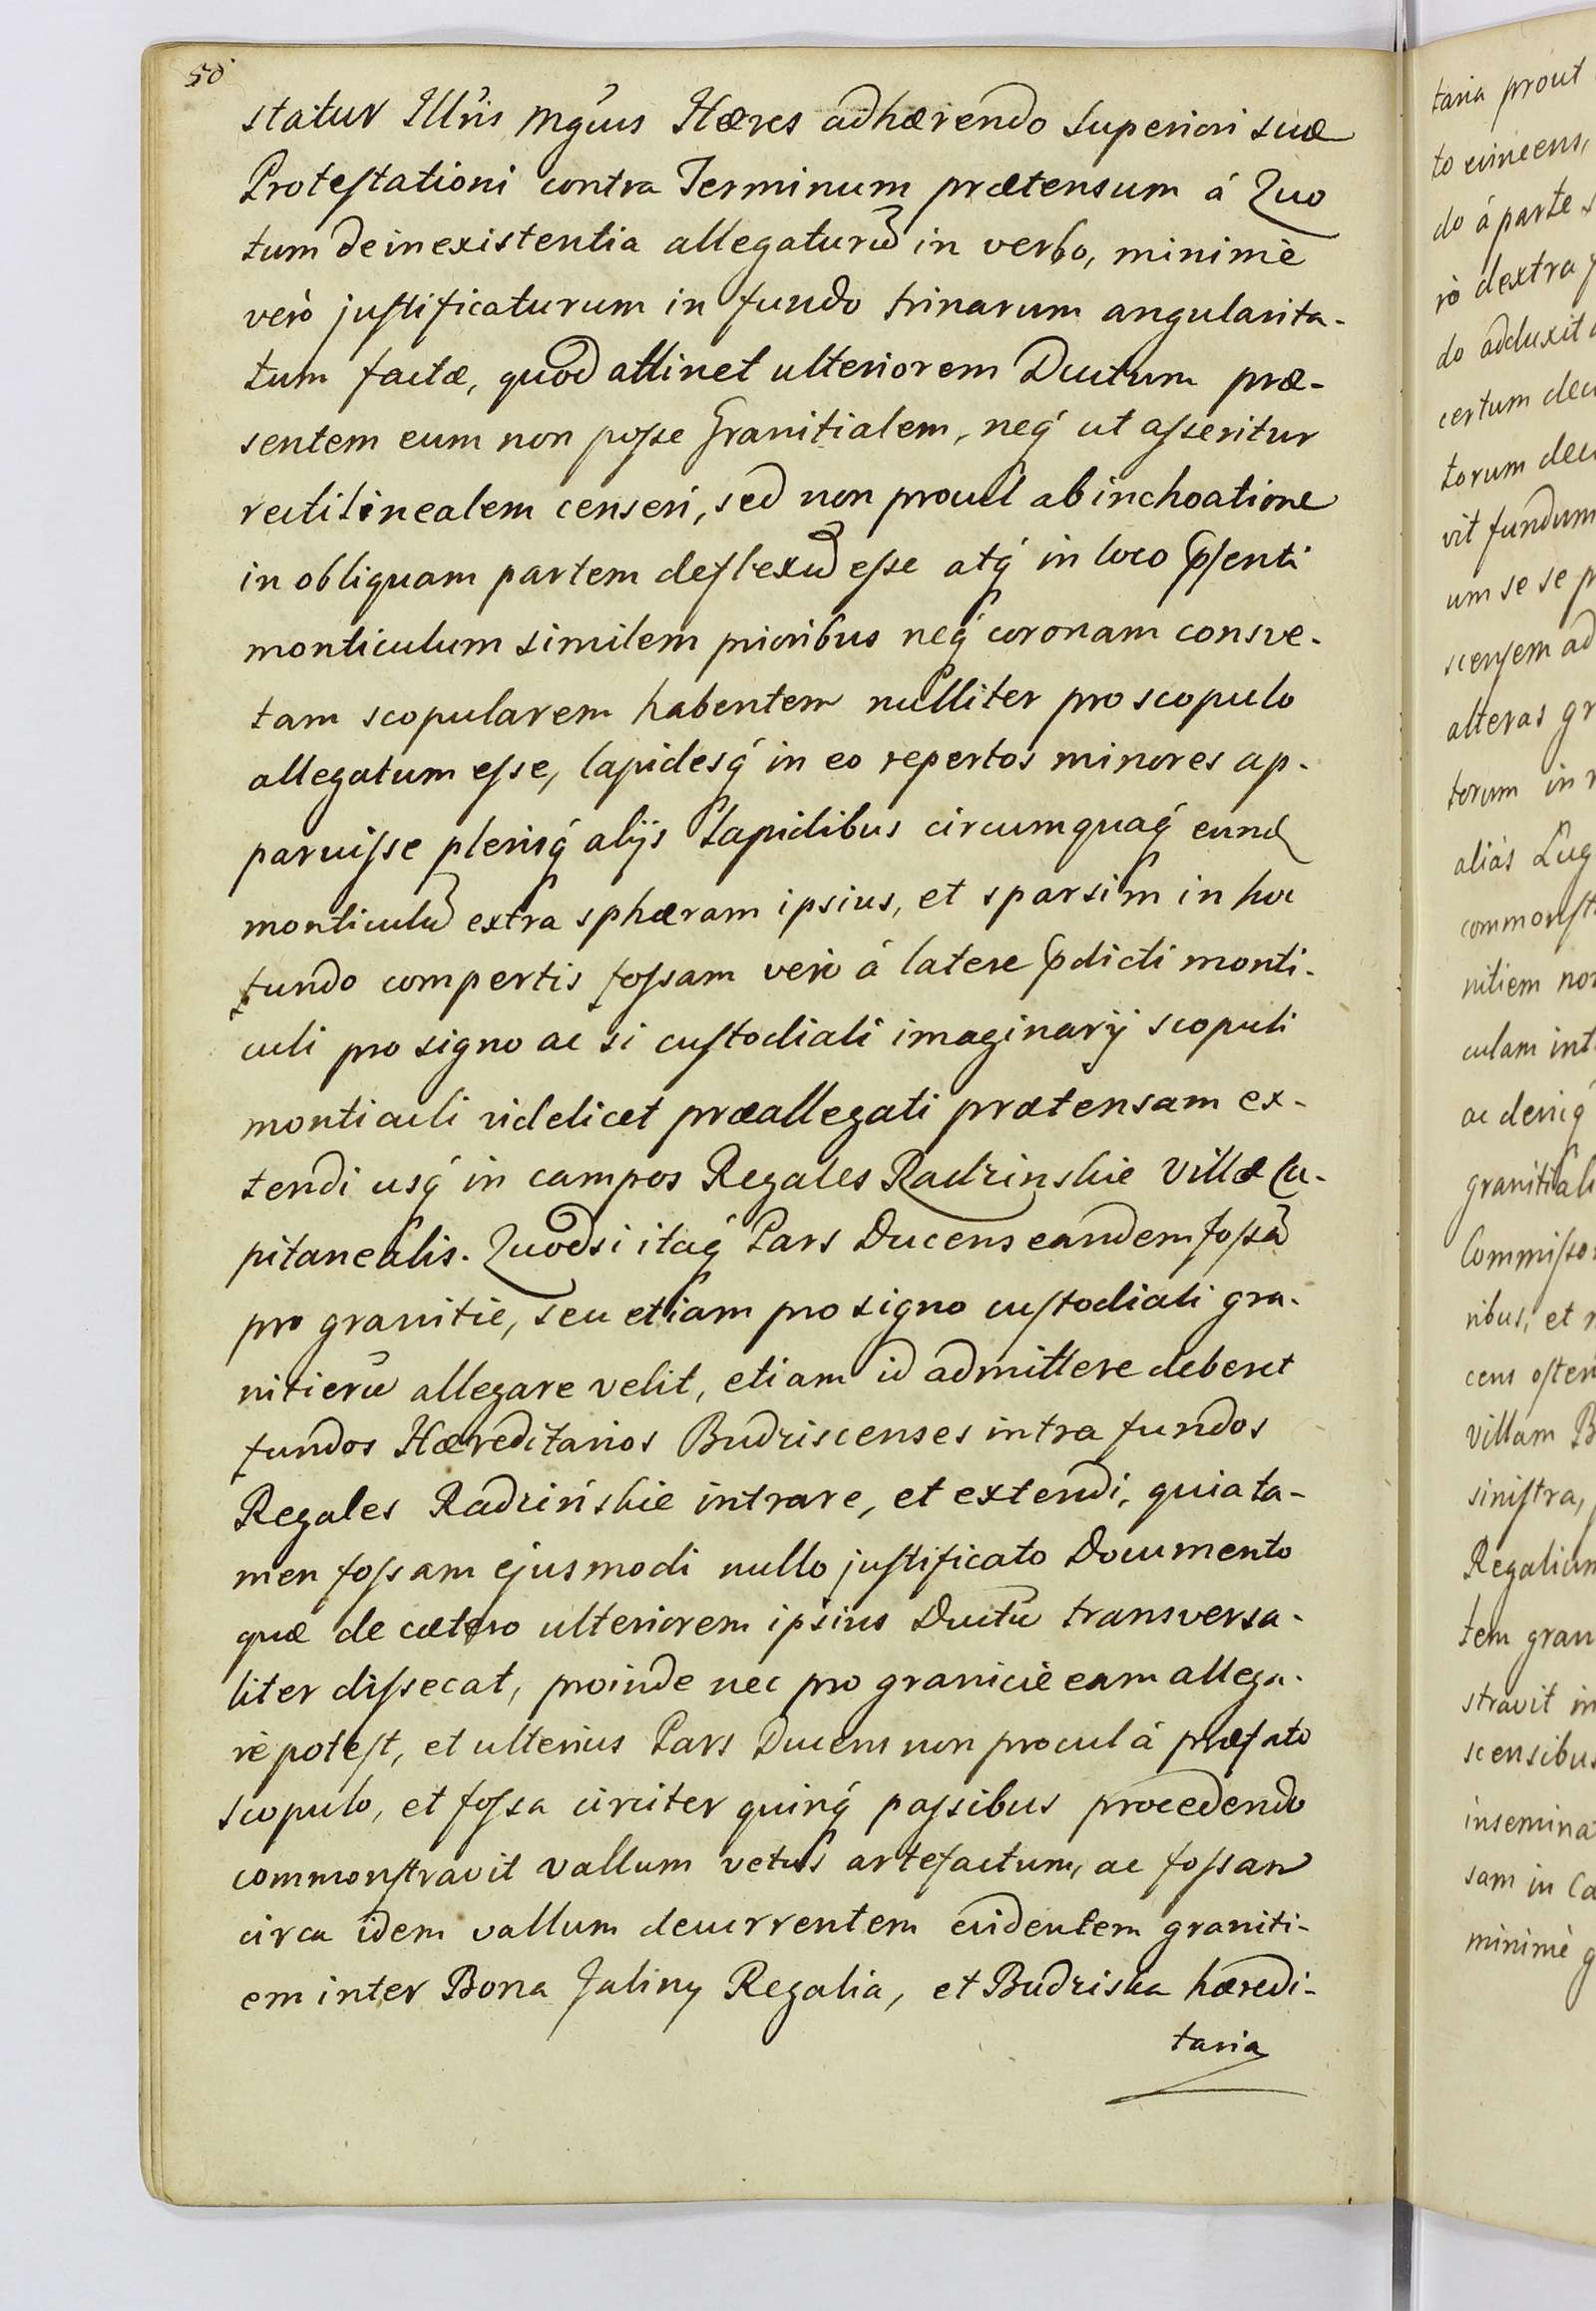 50
statur Illris Mgcus Hæres adhærendo superiori suæ
Protestationi contra Terminum prætensum á Quo
tum de inexistentia allegaturũ in verbo, minimè
verò justificaturum in fundo trinarum angularita-
tum factæ, quod attinet ulteriorem Ductum præ-
sentem eum non posse Granitialem, neq́ ut asseritur
rectilinealem censeri, sed non procul ab inchoatione
in obliquam partem deflexũ esse atq́ in loco p̃senti
monticulum similem prioribus neq́ coronam consve-
tam scopularem habentem nulliter pro scopulo
allegatum esse, lapidesq́ in eo repertos minores ap-
paruisse plerisq́ alijs Lapidibus circumquaq́ eund
monticulũ extra sphæram ipsius, et sparsim in hoc
fundo compertis fossam verò á latere p̃dicti monti-
culi pro signo ac si custodiali imaginarij scopuli
monticuli videlicet præallegati prætensam ex-
tendi usq́ in campos Regales Radzinskie Villæ Ca-
pitanealis. Quodsi itaq́ Pars Ducens eandem fossã
pro granitie, seu etiam pro signo custodiali gra-
nitierũ allegare velit, etiam id admittere deberet
fundos Hæreditarios Budziscenses intra fundos
Regales Radzińskie intrare, et extendi, quia ta-
men fossam ejusmodi nullo justificato Documento
quæ de cætero ulteriorem ipsius Ductũ transversa-
liter dissecat, proinde nec pro granicie eam allega-
re potest, et ulterius Pars Ducens non procul á præfato
scopulo, et fossa circiter quinq́ passibus procedendo
commonstravit vallum vetus artefactum, ac fossam
circa idem vallum decurrentem evidentem graniti-
em inter Bona Jaliny Regalia, et Budziska hæredi-
taria
taria prout
to evincens,
do á parte s
rò dextra p
do adduxit
certum dec
torum dec
vit fundum
um se se p
scensem ad
alteras gr
torum in
aliás Lug
commonst
nitiem non
culam int
ac deniq́
granitiali
Commissor
ribus, et
cens osten
Villam B
sinistra,
Regalium
tem gran
stravit in
scensibus
insemina
sam in Ca
minimè g